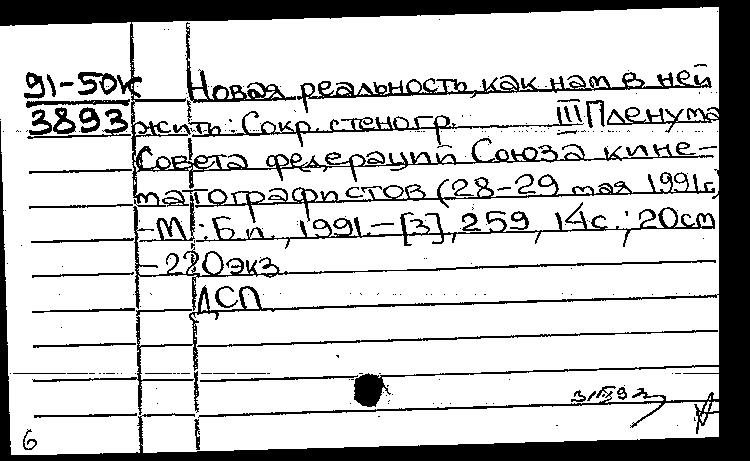 91-50к Новая реальность, как нам в ней
3893 жить: Сокр. стеногр. III Пленума
Совета федераций Союза кине-
матографистов (28-29 мая 1991г.)
-М.: Б.и., 1991.-[3], 259, 14с.; 20см
-220экз.
ДСП
6